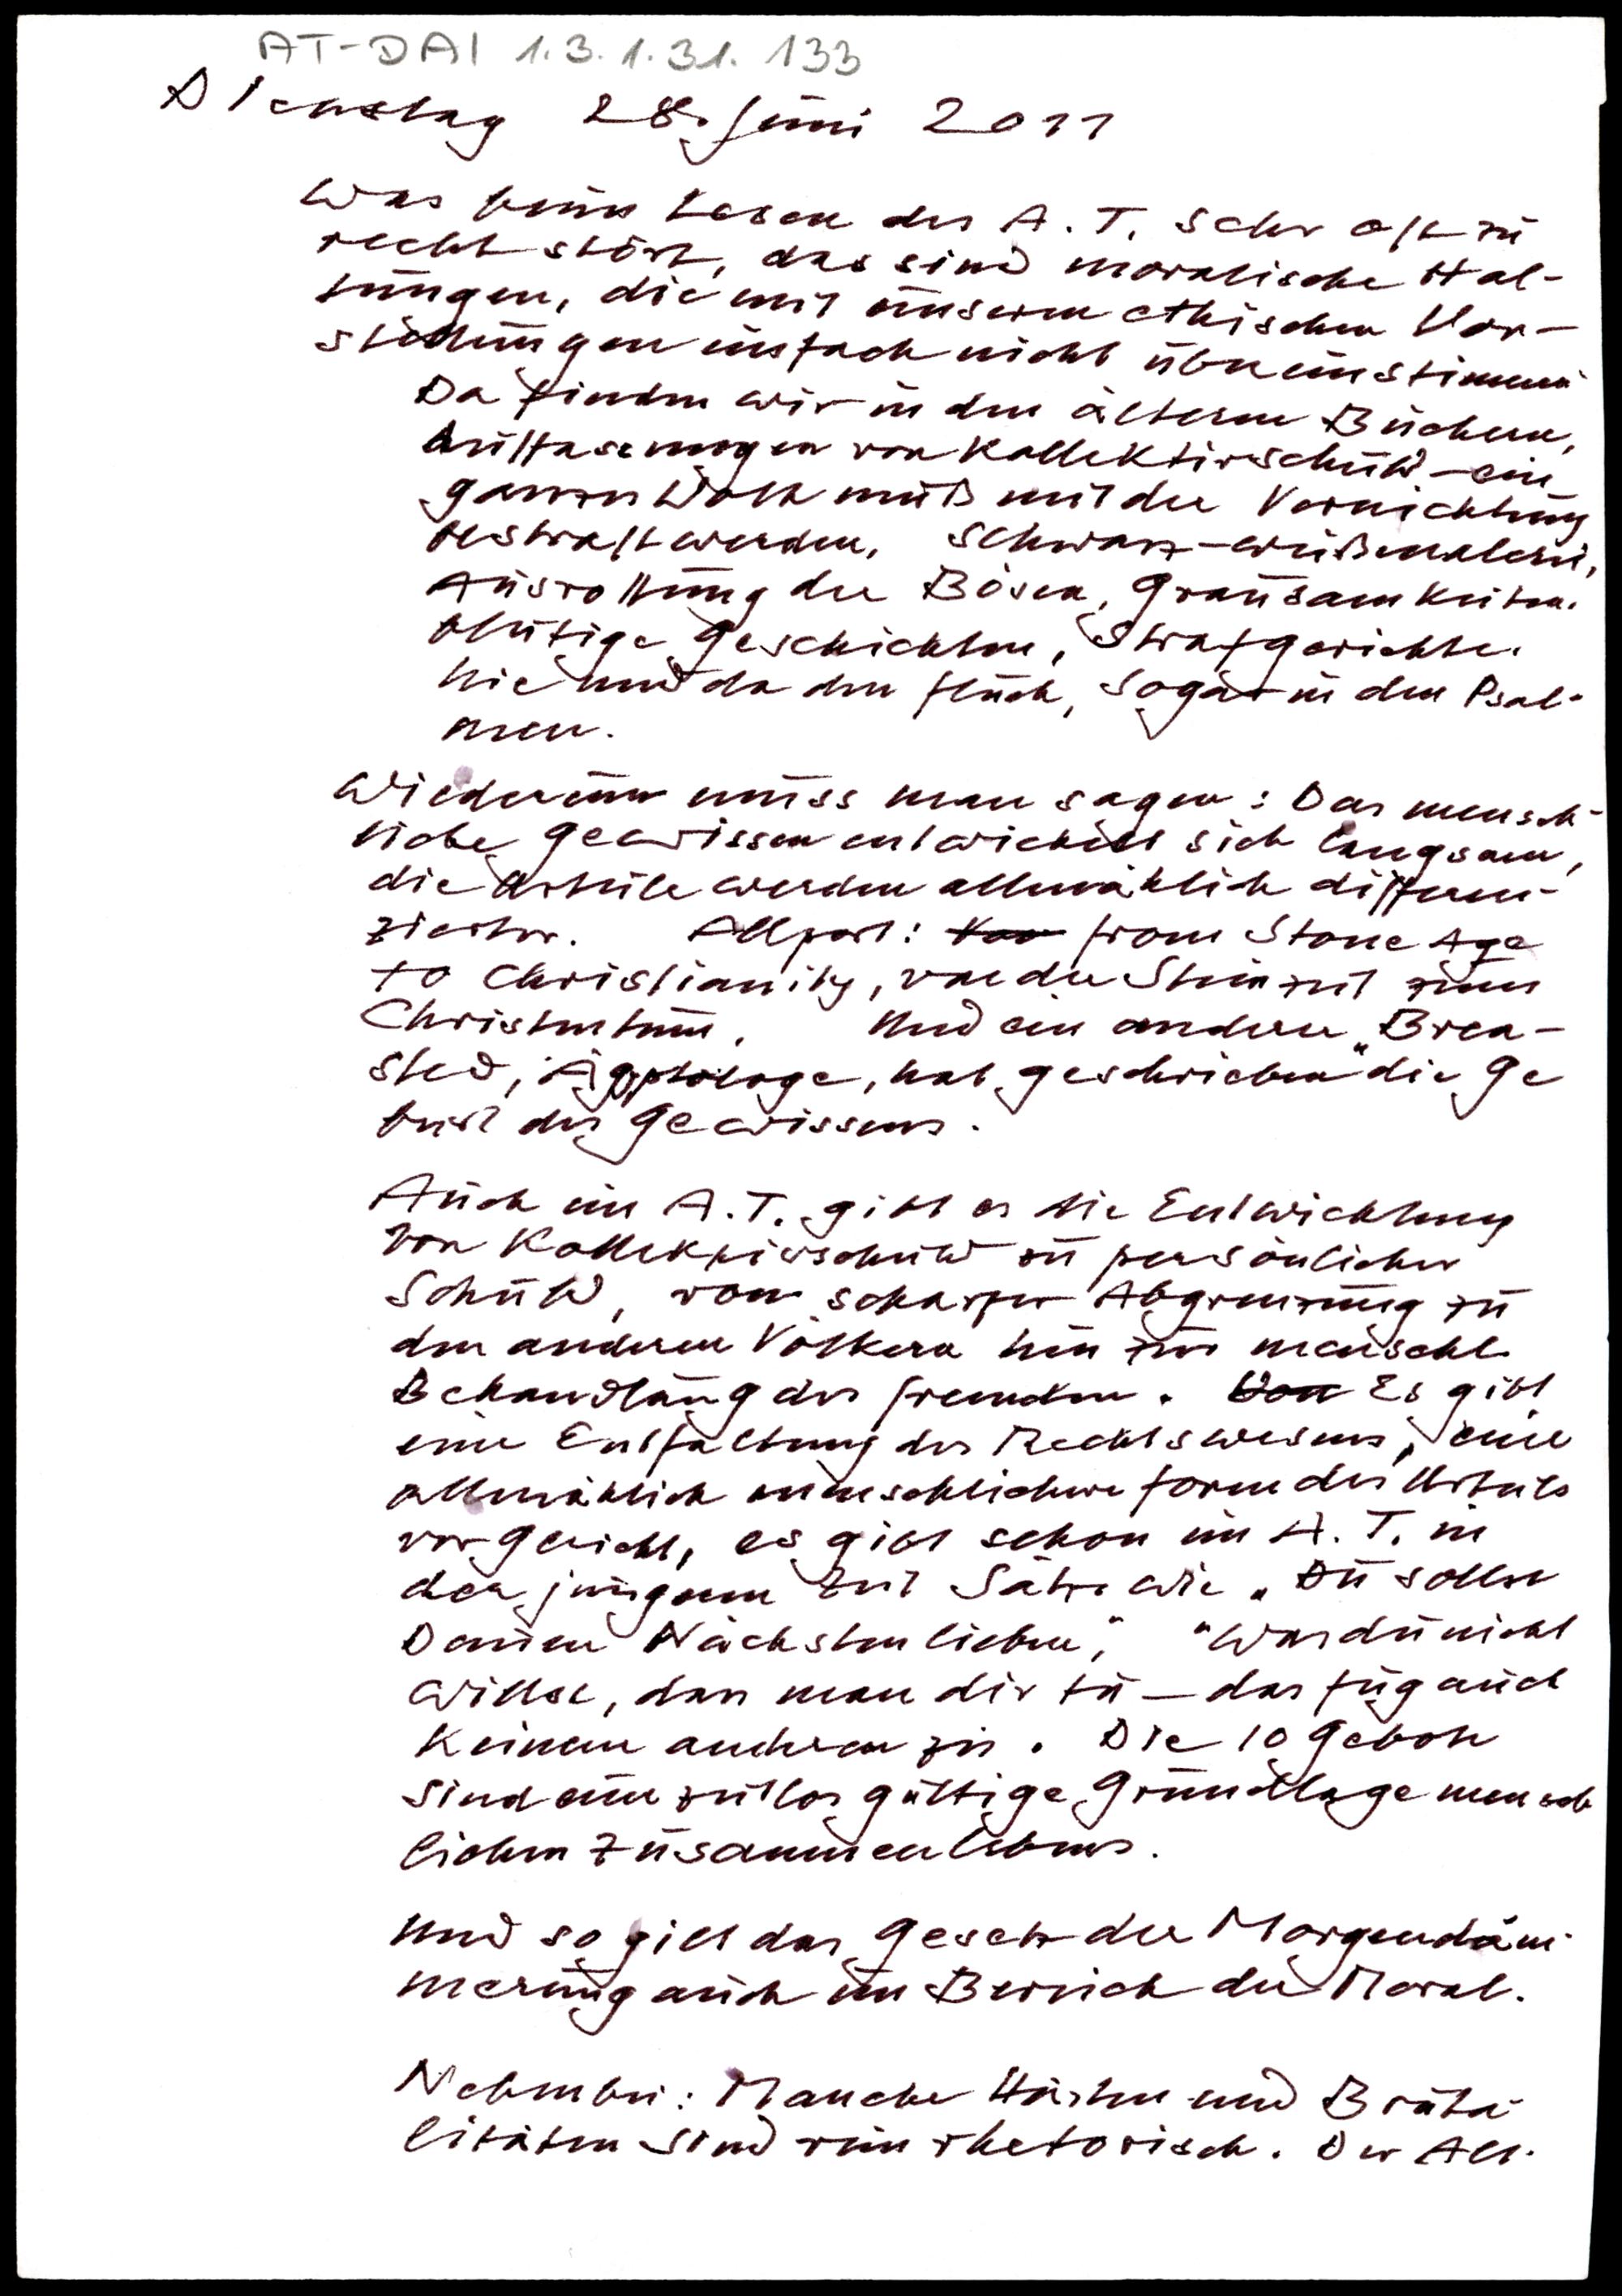 AT-DAI 1.3.1.31.133
Dienstag 28. Juni 2011
Was beim Lesen des A.T. sehr oft zu
recht stört, das sind moralische Hal-
tungen, die mit unseren ethischen Vor-
stellungen einfach nicht übereinstimmen
Da finden wir in den älteren Büchern,
Auffassungen von Kollektivschuld - ein
ganzes Volk muß mit der Vernichtung
bestraft werden, Schwarz-weißmalerei,
Ausrottung der Bösen, Grausamkeiten.
blutige Geschichten, Strafgerichte.
hie und da den Fluch, sogar in den Psal-
men.
Wiederum muss man sagen: Das mensch-
liche Gewissen entwickelt sich langsam,
die Urteile werden allmählich differen-
zierter. Allport: from Stone Age
to Christianity, von der Steinzeit zum
Christentum. Und ein anderer, Brea-
sted, Ägyptologe, hat geschrieben "die Ge
burt des Gewissens.
Auch im A.T. gibt es die Entwicklung
von Kollektivschuld zu persönlicher
Schuld, von scharfer Abgrenzung zu
den anderen Völkern hin zur menschl.
Behandlung des Fremden. Es gibt
eine Entfaltung des Rechtswesens, eine
allmählich menschlichere Form des Urteils
vor Gericht, es gibt schon im A.T. in
der jüngeren Zeit Sätze wie "Du sollst
Deinen Nächsten lieben", "Was du nicht
willst, dass man dir tu - das füg auch
keinem anderen zu. Die 10 Gebote
sind eine zeitlos gültige Grundlage mensch
lichen Zusammenlebens.
Und so gilt das Gesetz der Morgendäm-
merung auch im Bereich der Moral.
Nebenbei: Manche Härten und Bruta-
litäten sind rein rhetorisch. Der Alt-